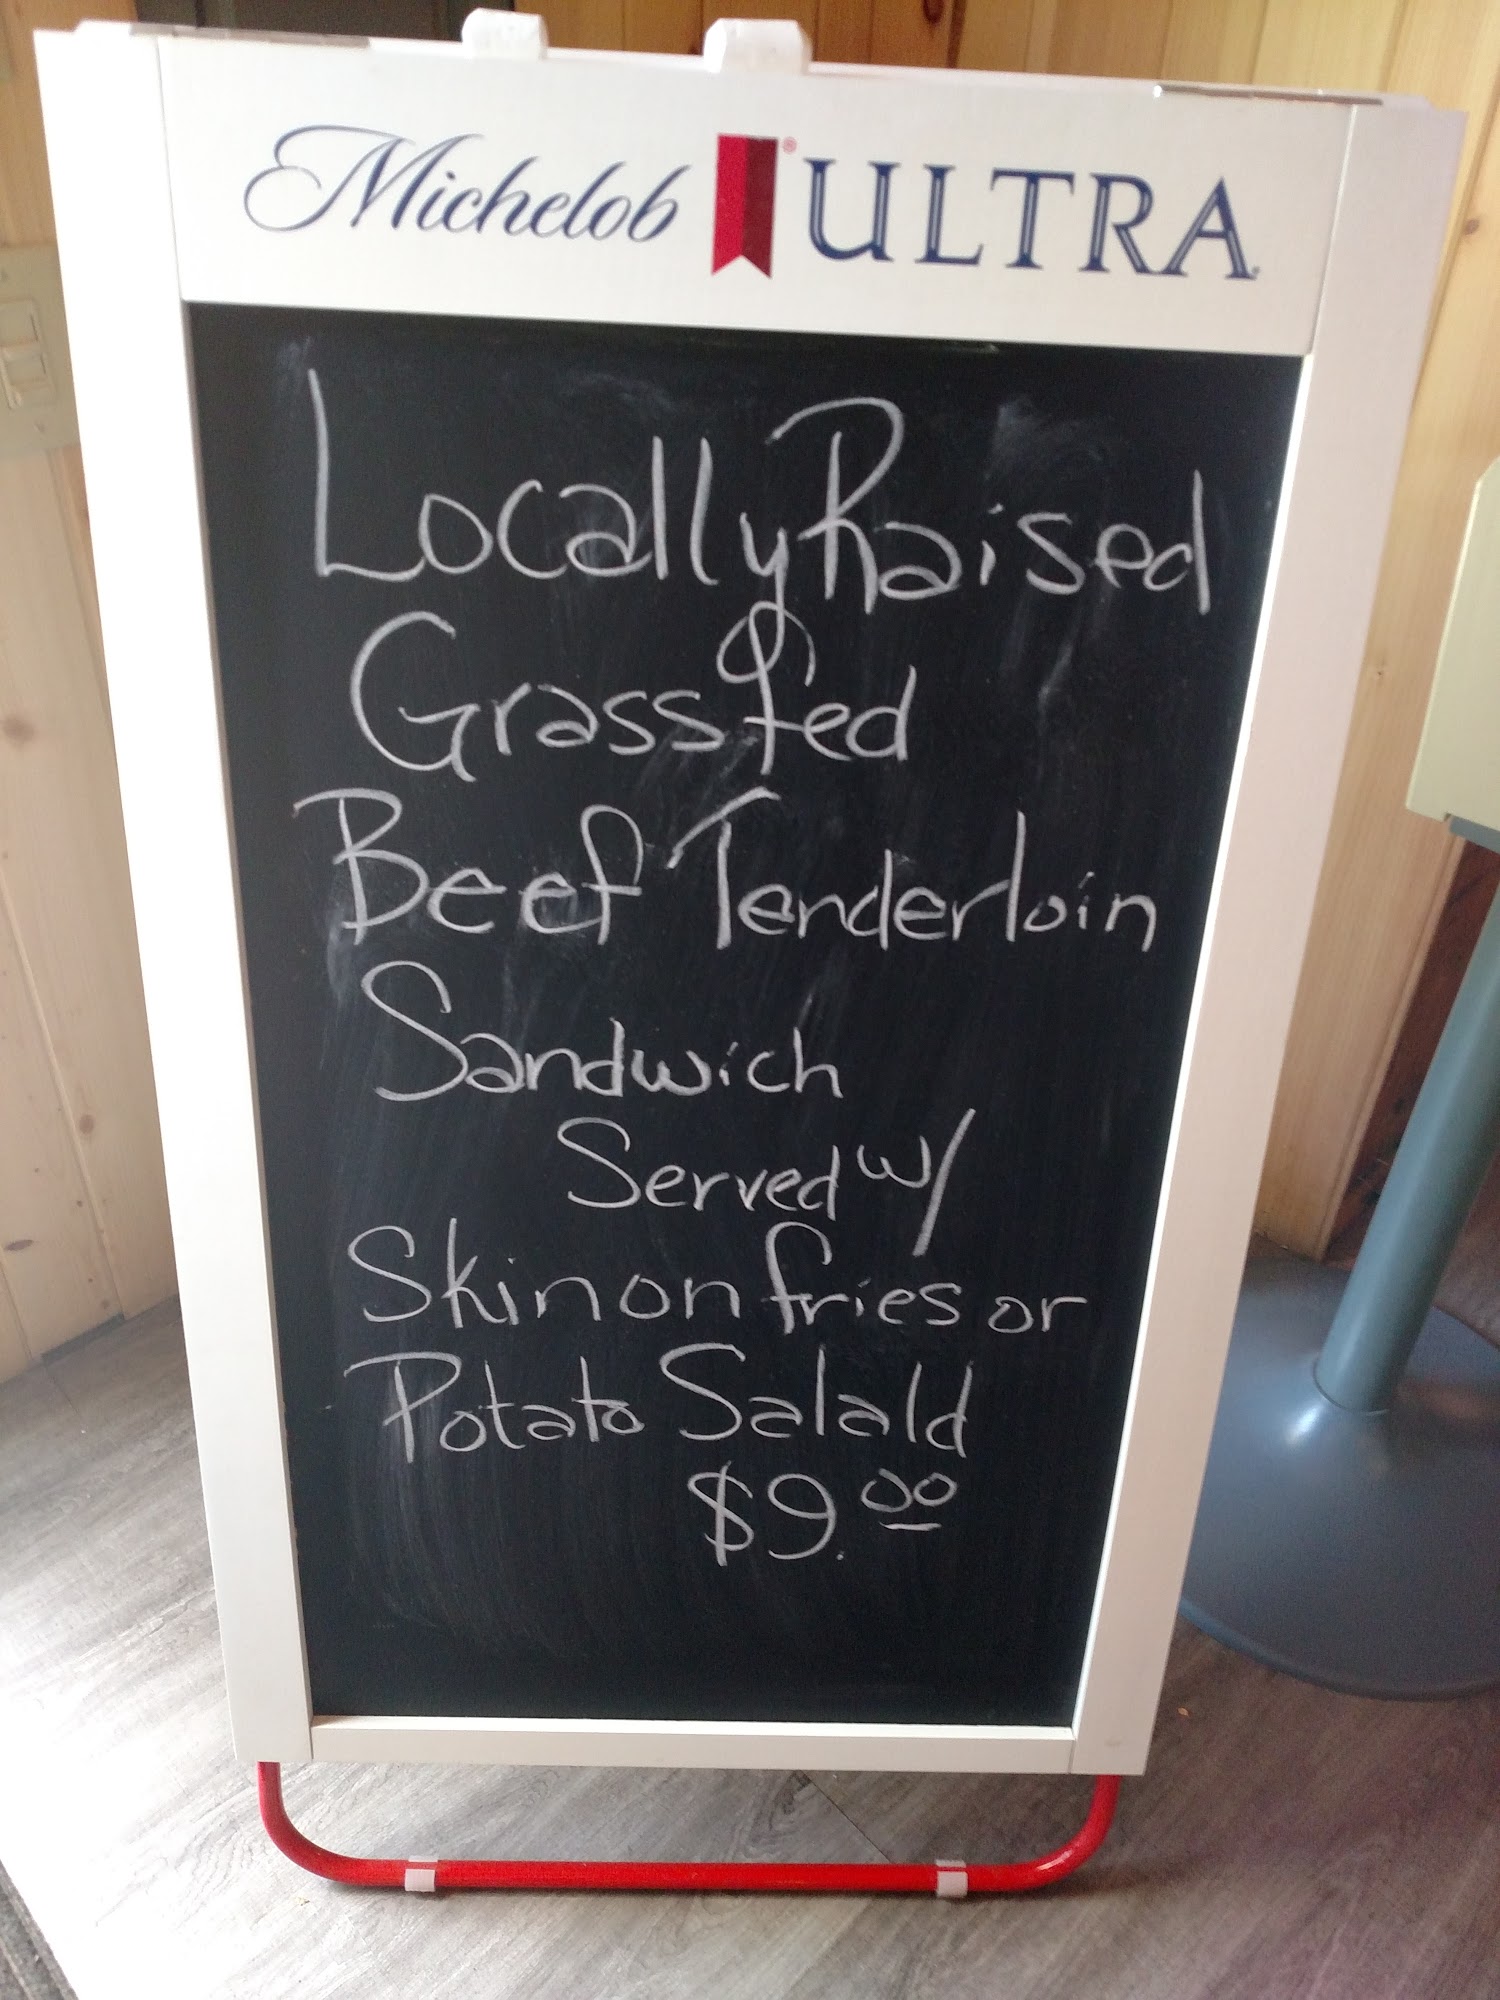 Michelob ® ULTRA
Locally Raised
Grassfed
Beef Tenderloin
Sandwich
Served w/
Skin on fries or
Potato Salald
$9.00